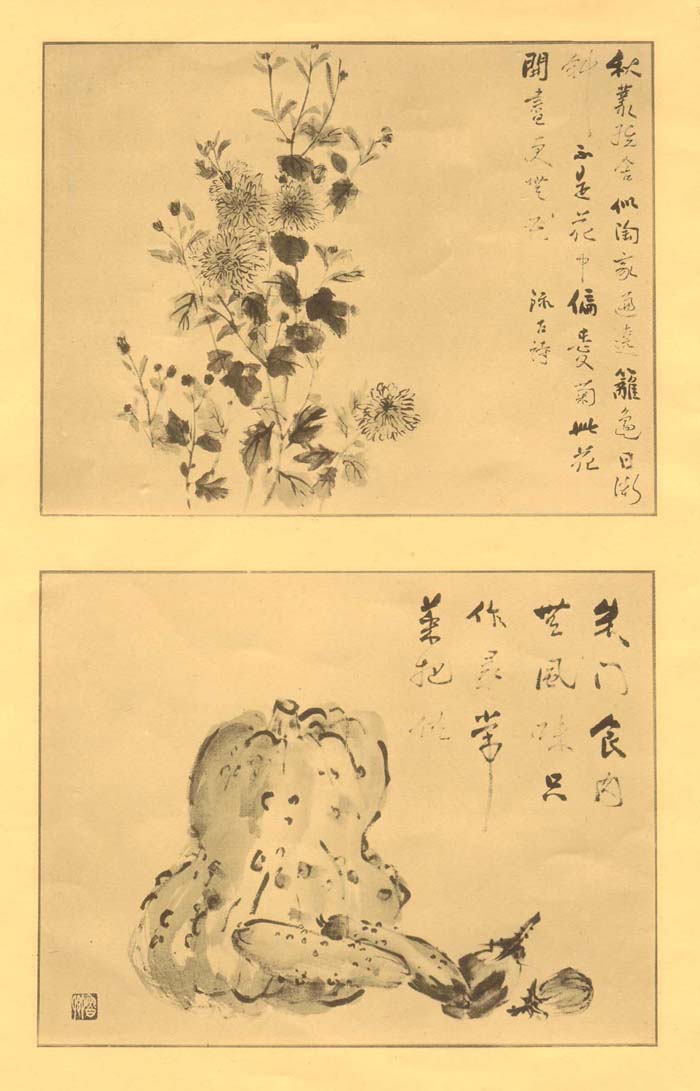 秋叢繞舍似陶家遍遶籬邊日漸
斜不是花中偏愛菊此花
開盡更無花 錄古詩
朱門食肉
無風味只
作尋常
菜把供